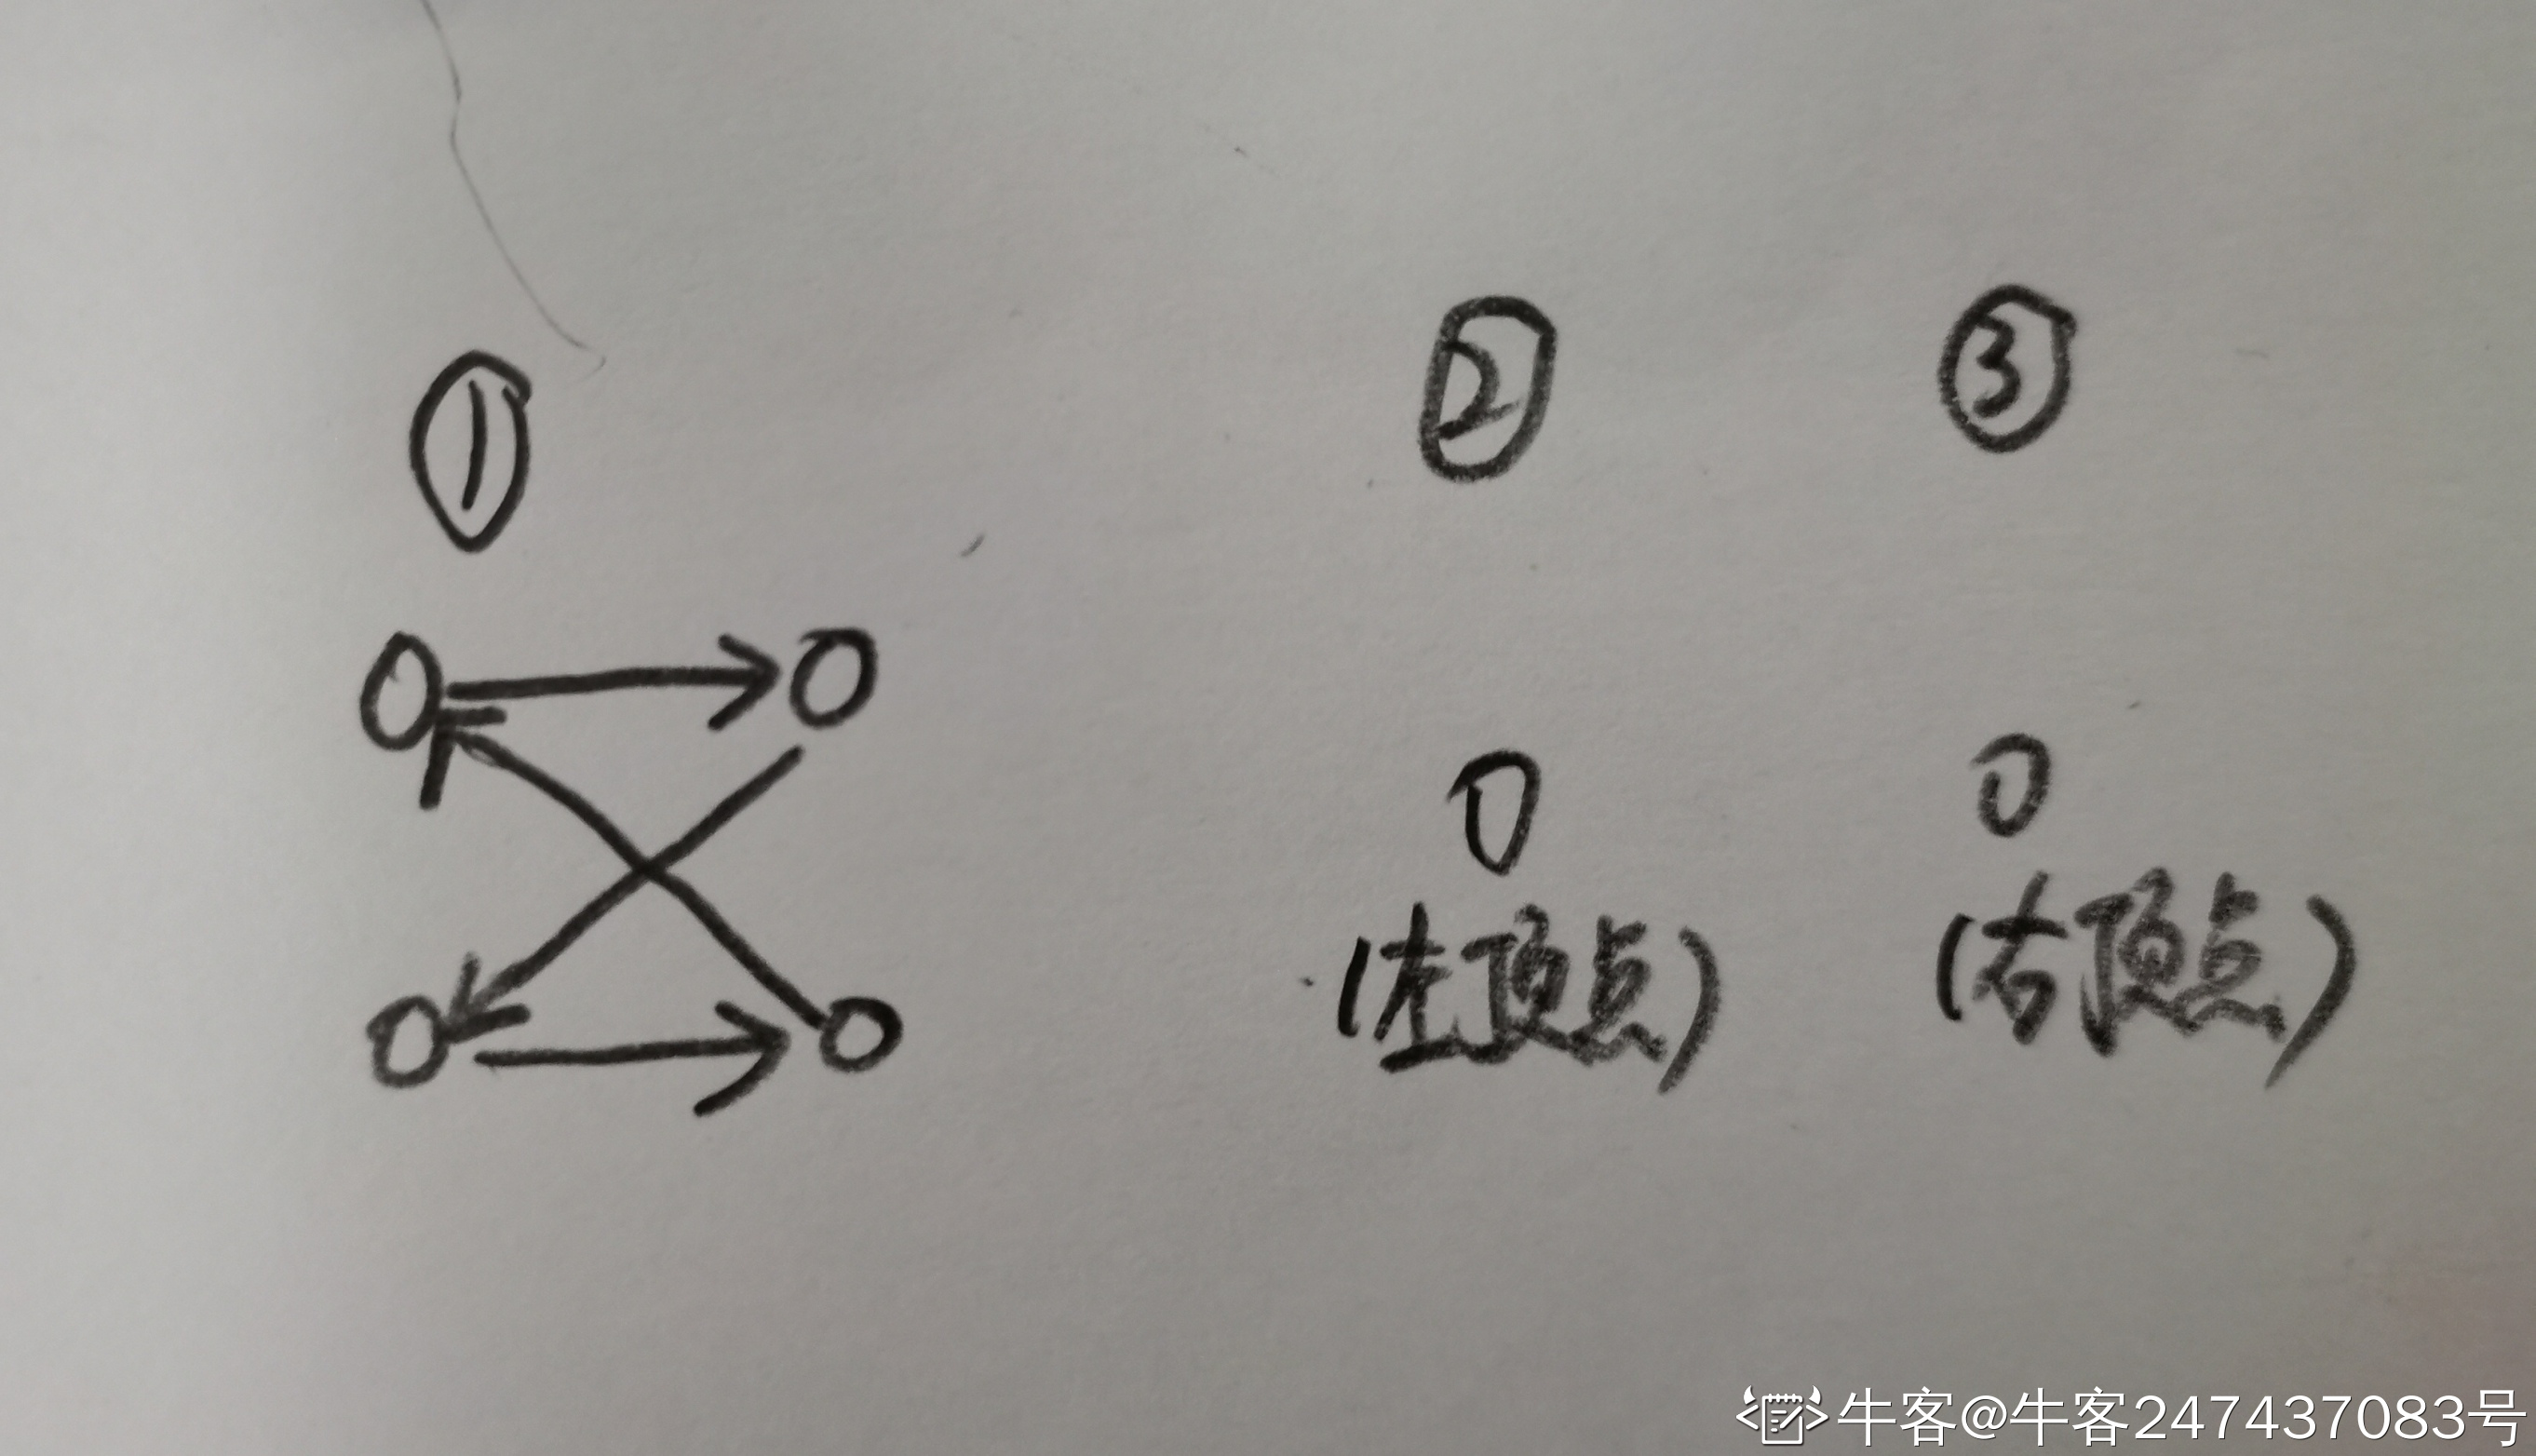 ① ② ③
(左顶点) (右顶点)
牛客@牛客247437083号